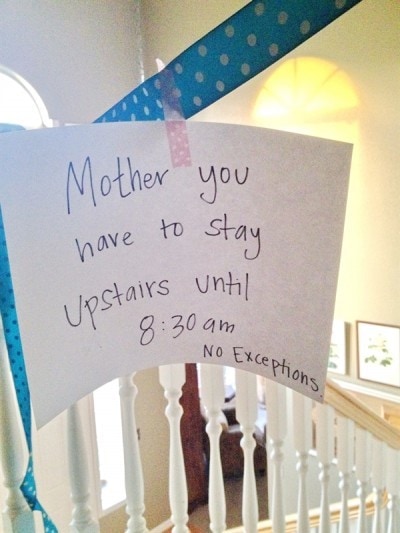 Mother you
have to stay
upstairs until
8:30 am
No Exceptions.